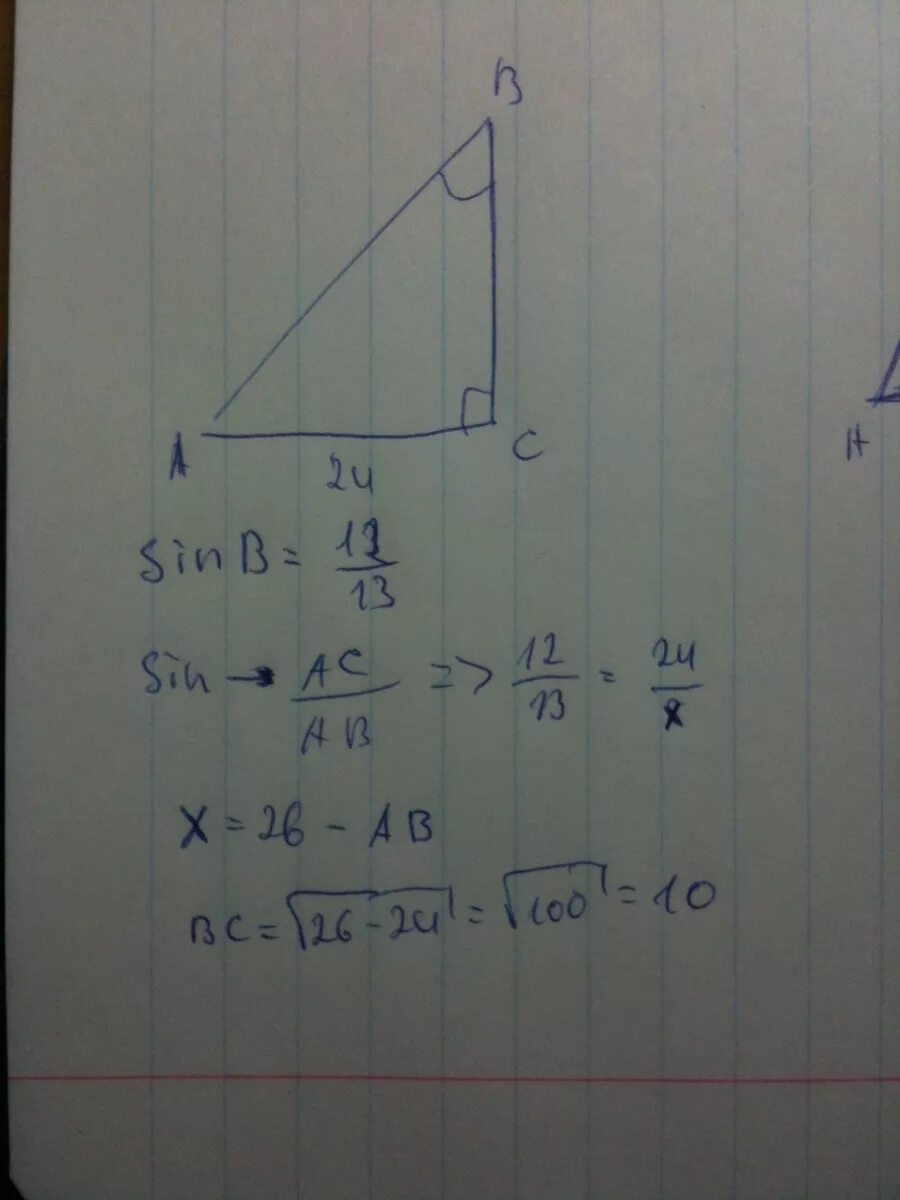 B
A
C
24
sin B = 12/13
sin → AC/AB => 12/13 = 24/x
x = 26 - AB
BC = √26-24 = √100 = 10
A